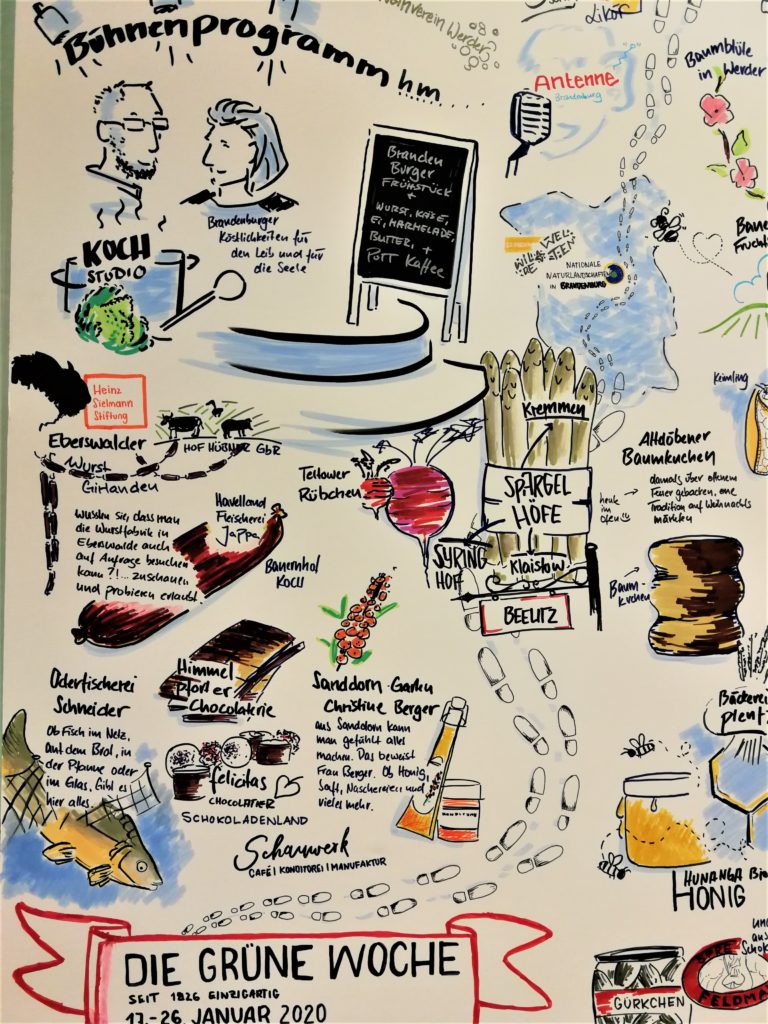 Likör
Weinverein Werder
Bühnenprogramm hm....
Antenne
Brandenburg
Baumblüte
in Werder
Branden
Burger
FRÜHSTÜCK
+
WURST, KÄSE,
Ei, MARMELADE,
BUTTER, +
POTT KAFFEE
Brandenburger
Köstlichkeiten für
den Leib und für
die Seele
KOCH
STUDIO
NATIONALE
NATURLANDSCHAFTEN
IN BRANDENBURG
Keimling
Heinz
Sielmann
Stiftung
HOF HÜBNER GbR
Eberswalder
Wurst
Girlanden
Wussten Sie, dass man
die Wurstfabrik in
Eberswalde auch
auf Anfrage besuchen
kann?!... zuschauen
und probieren erlaubt!
Havelland
Fleischerei
Jappa
Bauernhof
KOCH
Teltower
Rübchen
Kremmen
SPARGEL
HÖFE
SYRING
HOF
Klaistow
BEELITZ
heute
im
Ofen
Altdöbener
Baumkuchen
damals über offenem
Feuer gebacken, eine
Tradition auf Weihnachts
märkten
Baum-
kuchen
Oderfischerei
Schneider
Ob Fisch im Netz,
auf dem Brot, in
der Pfanne oder
im Glas. Gibt es
hier alles.
Himmel
pforter
Chocolaterie
felicitas
CHOCOLATIER
SCHOKOLADENLAND
Sanddorn-Garten
Christine Berger
aus Sanddorn kann
man gefühlt alles
machen. Das beweist
Frau Berger. Ob Honig,
Saft, Naschereien und
vieles mehr.
Schauwerk
CAFÉ | KONDITOREI | MANUFAKTUR
Bäckerei
plentz
HUNANGA Bio
HONIG
GÜRKCHEN
FELDMA
DIE GRÜNE WOCHE
SEIT 1926 EINZIGARTIG
17.-26. JANUAR 2020